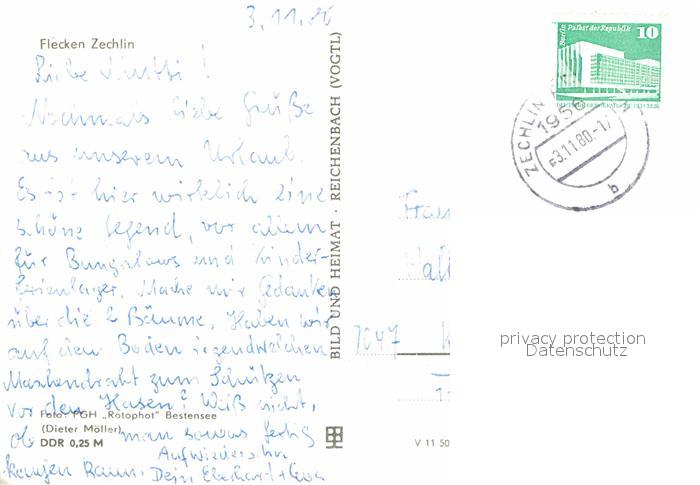 3.11.80
Flecken Zechlin
Liebe Mutti!
Nochmals liebe Grüße
aus unserem Urlaub.
Es ist hier wirklich eine
schöne Gegend, vor allem
für Bungalows und Kinder-
ferienlager. Mache mir Gedanken
über die 2 Bäume. Haben wir
auf dem Boden irgendwelchen
Maschendraht zum Schützen
vor den Hasen? Weiß nicht,
Foto: PGH „Rotophot" Bestensee
(Dieter Möller)
ob man sowas fertig
DDR 0,25 M
kaufen kann.
Aufwiedersehn
Dein Eberhard +
BILD UND HEIMAT · REICHENBACH (VOGTL)
V 11 50
Berlin Palast der Republik
10
DEUTSCHE DEMOKRATISCHE REPUBLIK
ZECHLIN
195
-3.11.80-17
b
Frau
privacy protection
Datenschutz